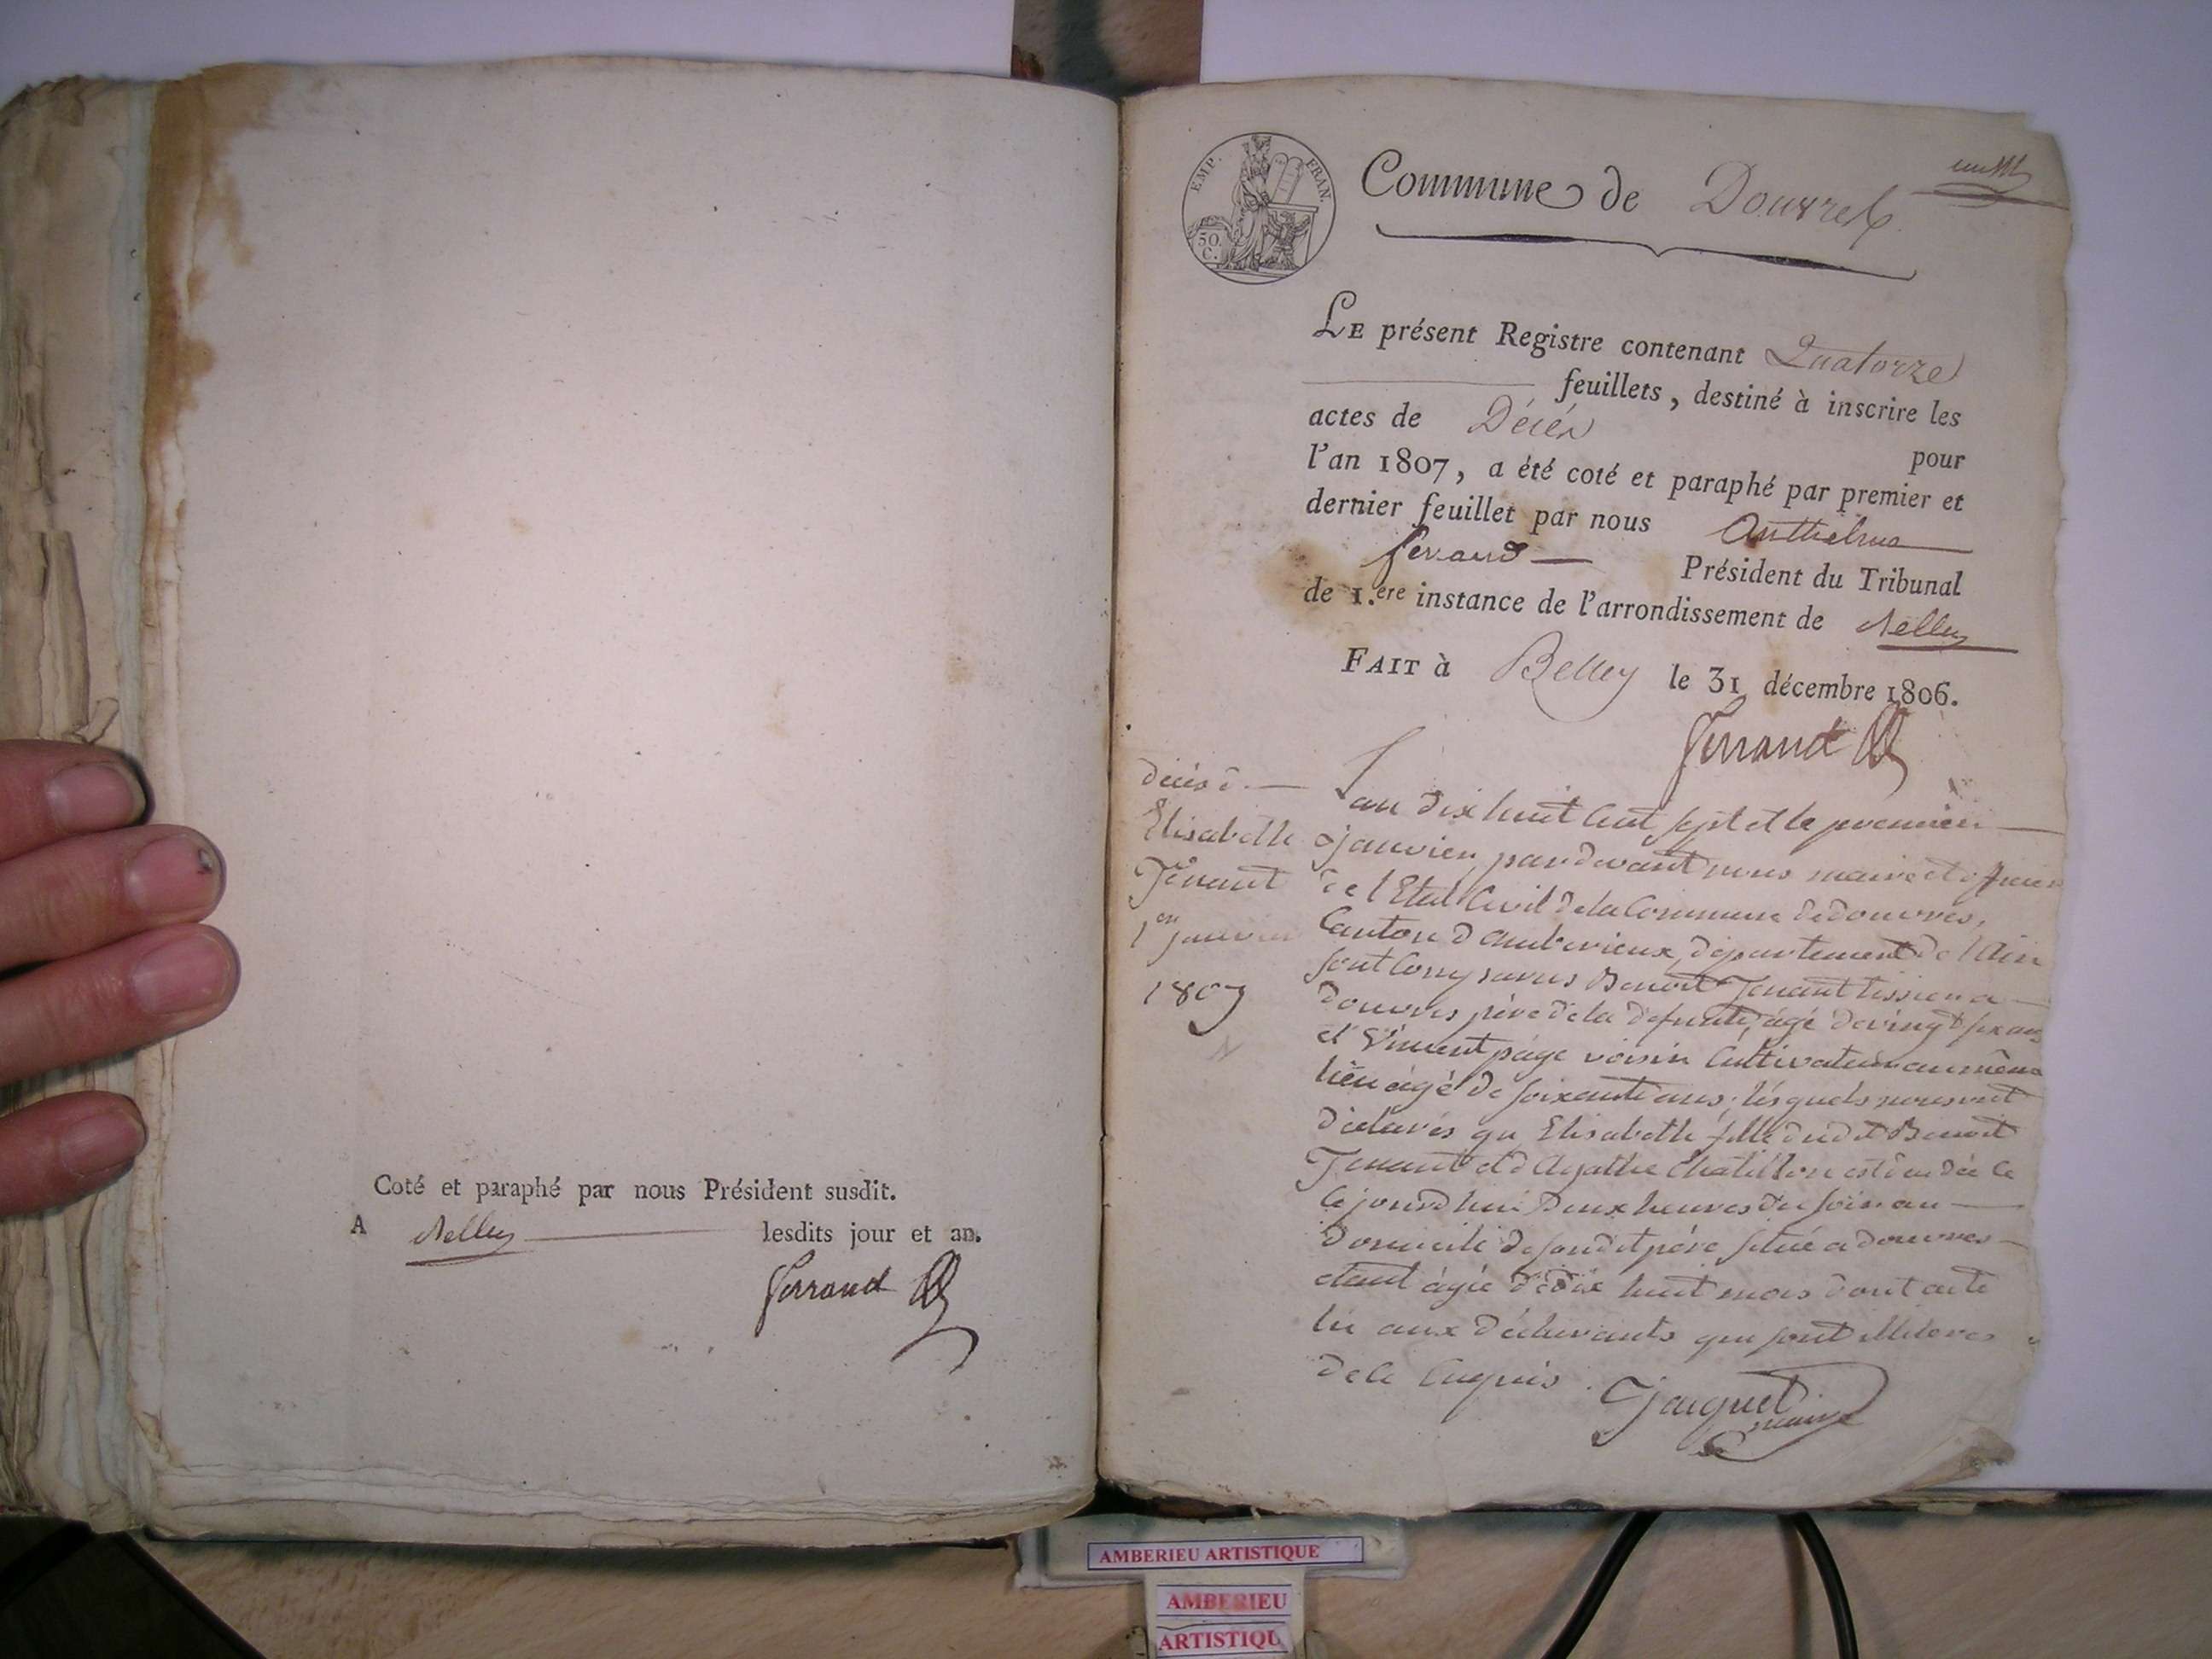 Coté et paraphé par nous Président susdit.
A Belley lesdits jour et an.
Ferrand
EMP. FRAN.
50.
C.
Commune de Douvres
LE présent Registre contenant Quatorze
feuillets, destiné à inscrire les
actes de Décés
pour
l'an 1807, a été coté et paraphé par premier et
dernier feuillet par nous Anthelme
ferrand
Président du Tribunal
de 1.ere instance de l'arrondissement de Belley
FAIT à Belley le 31 décembre 1806.
Ferrand
décès d.
Elisabethe
Tenant
1er janvier
1807
L'an dix huit cent sept et le premier
janvier par devant nous maire et officier
de l'Etat Civil de la Commune de douvres,
Canton d'amberieux, département de l'Ain
sont Comparus Benoit Tenant tissier a
douvres père de la défunte, agé de vingt six ans
et Vincent page voisin Cultivateur au même
lieu agé de soixante ans; lesquels nous ont
déclarés qu Elisabethe fille dudit Benoit
Tenant et d Agathe Chatillon est décédée ce
jourdhui Deux heures du soir au
Domicile de sondit père situé a douvres
etant agée de dix huit mois dont acte
lu aux déclarants qui sont illiteres
de ce Enquis.
Jaquet
maire
AMBERIEU ARTISTIQUE
AMBERIEU
ARTISTIQU